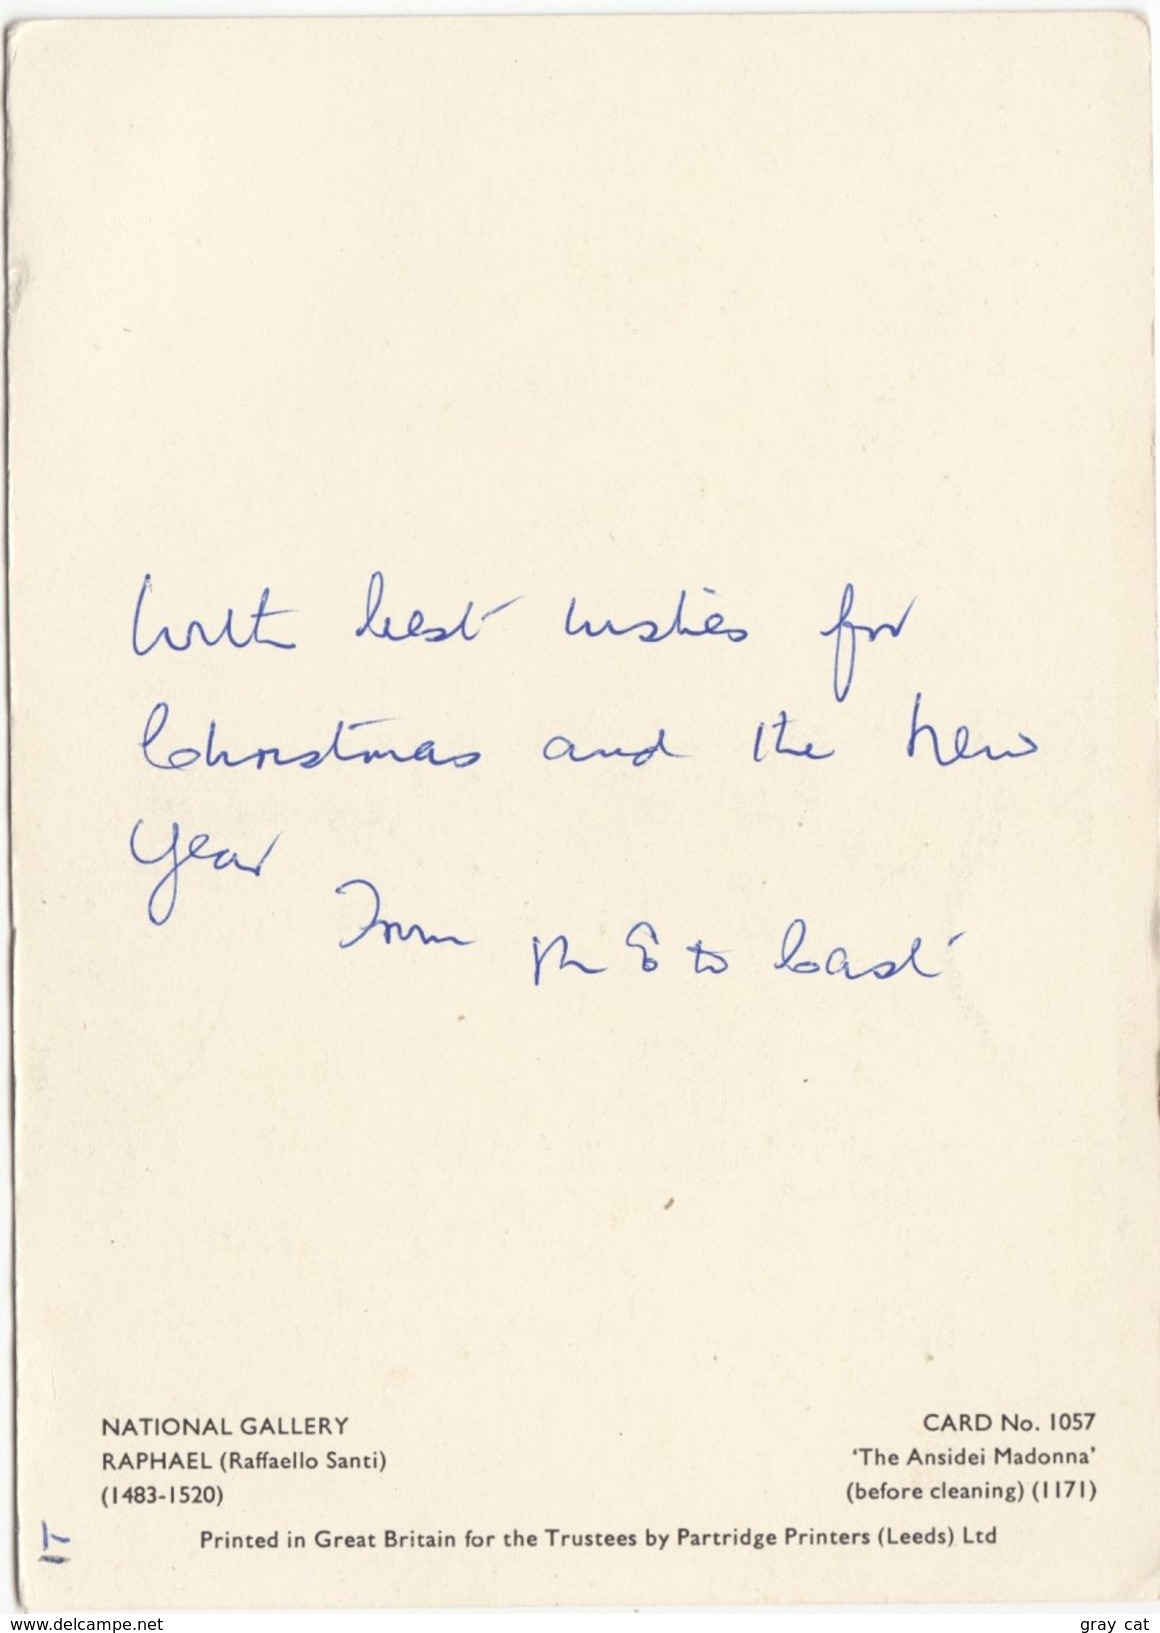 With best wishes for
Christmas and the New
Year
From
NATIONAL GALLERY
RAPHAEL (Raffaello Santi)
(1483-1520)
CARD No. 1057
'The Ansidei Madonna'
(before cleaning) (1171)
Printed in Great Britain for the Trustees by Partridge Printers (Leeds) Ltd
IT
www.delcampe.net
gray cat